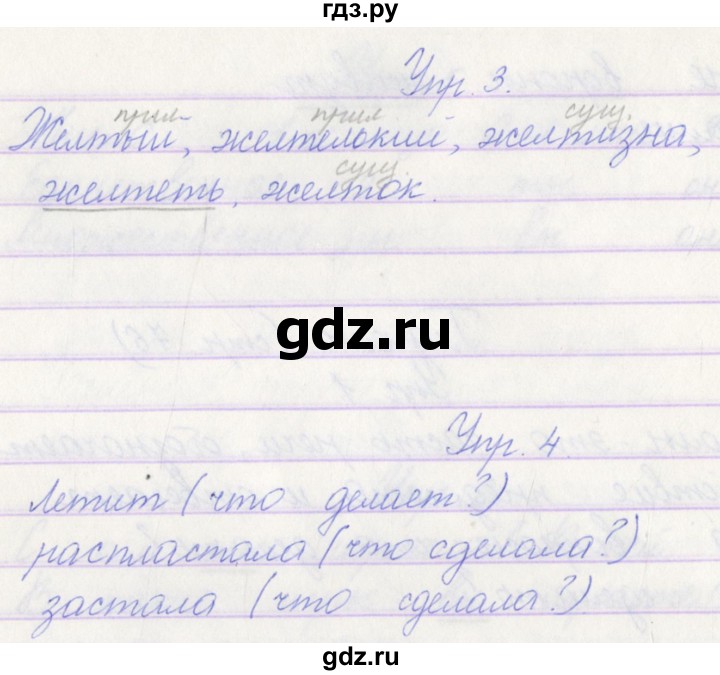 гдз.ру
Упр. 3.
прил прил сущ.
Желтый, желтелький, желтизна,
сущ.
желтеть, желток.
gdz.ru
Упр. 4.
летит (что делает?)
распластала (что сделала?)
застала (что сделала?)
gdz.ru